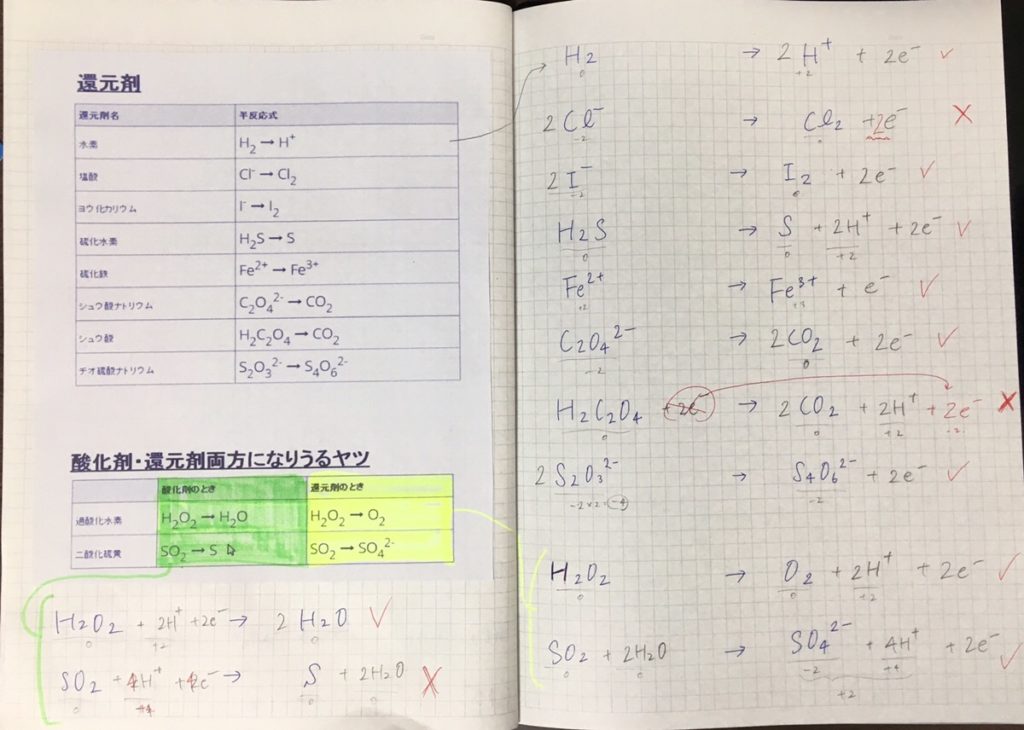 還元剤
還元剤名 半反応式
水素 H₂ → H⁺
塩酸 Cl⁻ → Cl₂
ヨウ化カリウム I⁻ → I₂
硫化水素 H₂S → S
硫化鉄 Fe²⁺ → Fe³⁺
シュウ酸ナトリウム C₂O₄²⁻ → CO₂
シュウ酸 H₂C₂O₄ → CO₂
チオ硫酸ナトリウム S₂O₃²⁻ → S₄O₆²⁻
酸化剤・還元剤両方になりうるヤツ
酸化剤のとき 還元剤のとき
過酸化水素 H₂O₂ → H₂O H₂O₂ → O₂
二酸化硫黄 SO₂ → S SO₂ → SO₄²⁻
H₂O₂ + 2H⁺ + 2e⁻ → 2H₂O ✓
0 +2 0
SO₂ + 4H⁺ + 4e⁻ → S + 2H₂O ✗
0 +4 0 0
H₂ → 2H⁺ + 2e⁻ ✓
0 +2
2Cl⁻ → Cl₂ + 2e⁻ ✗
-2 0
2I⁻ → I₂ + 2e⁻ ✓
-2 0
H₂S → S + 2H⁺ + 2e⁻ ✓
0 0 +2
Fe²⁺ → Fe³⁺ + e⁻ ✓
+2 +3
C₂O₄²⁻ → 2CO₂ + 2e⁻ ✓
-2 0
H₂C₂O₄ +2e⁻ → 2CO₂ + 2H⁺ + 2e⁻ ✗
0 0 +2 -2
2S₂O₃²⁻ → S₄O₆²⁻ + 2e⁻ ✓
-2×2=-4 -2
H₂O₂ → O₂ + 2H⁺ + 2e⁻ ✓
0 0 +2
SO₂ + 2H₂O → SO₄²⁻ + 4H⁺ + 2e⁻ ✓
0 0 -2 +4
+2